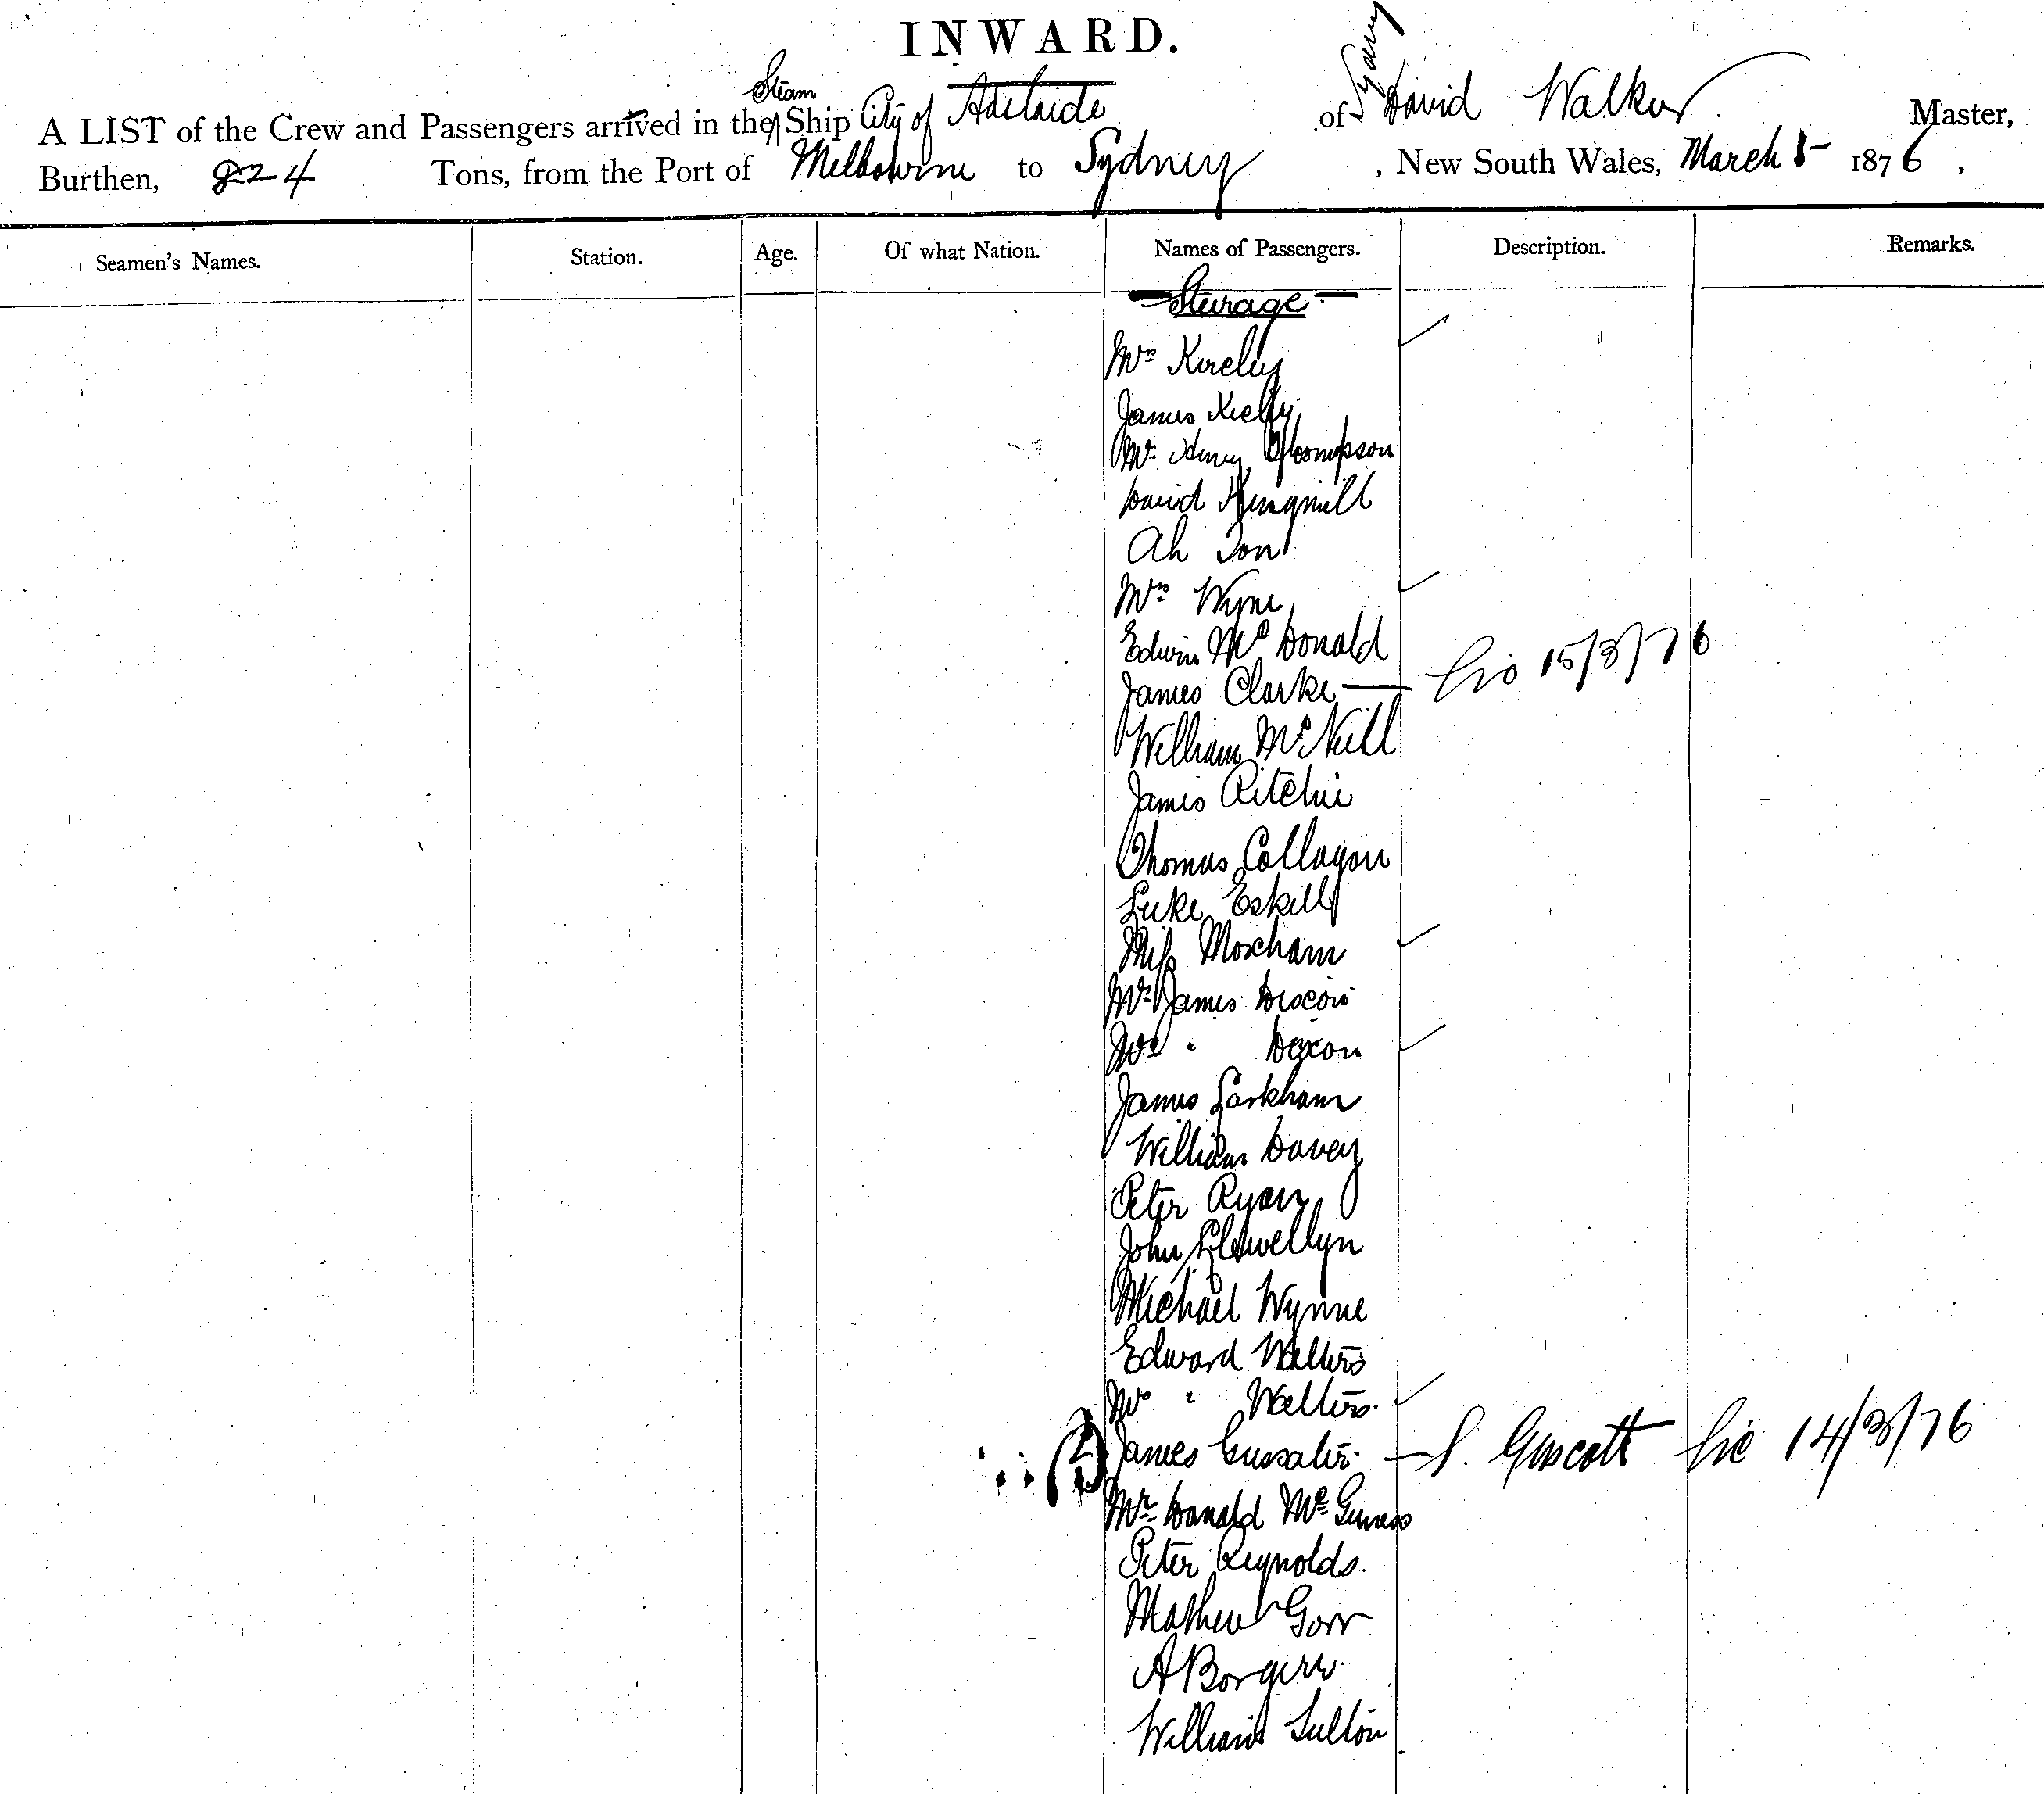 INWARD.
A LIST of the Crew and Passengers arrived in the Steam Ship City of Adelaide of Sydney David Walker Master,
Burthen, 824 Tons, from the Port of Melbourne to Sydney, New South Wales, March 8 1876,
Seamen's Names. Station. Age. Of what Nation. Names of Passengers. Description. Remarks.
Steerage
Mrs
James Kielly
Mr Henry Thompson
David Kingmill
Ah Ton
Mrs Wyne
Edwin McDonald
James Clarke — 15/3/76
William McNeill
James Ritchie
Thomas Collagon
Luke Eskell
Miss Moxham
Mr James
Mrs " Dixon
James Larkham
William Davey
Peter Ryan
John Llewellyn
Michael Wynne
Edward Walters
Mrs " Walters
James — 14/3/76
Mr Donald
Peter Reynolds.
Mathew Gorr
A
William Sutton